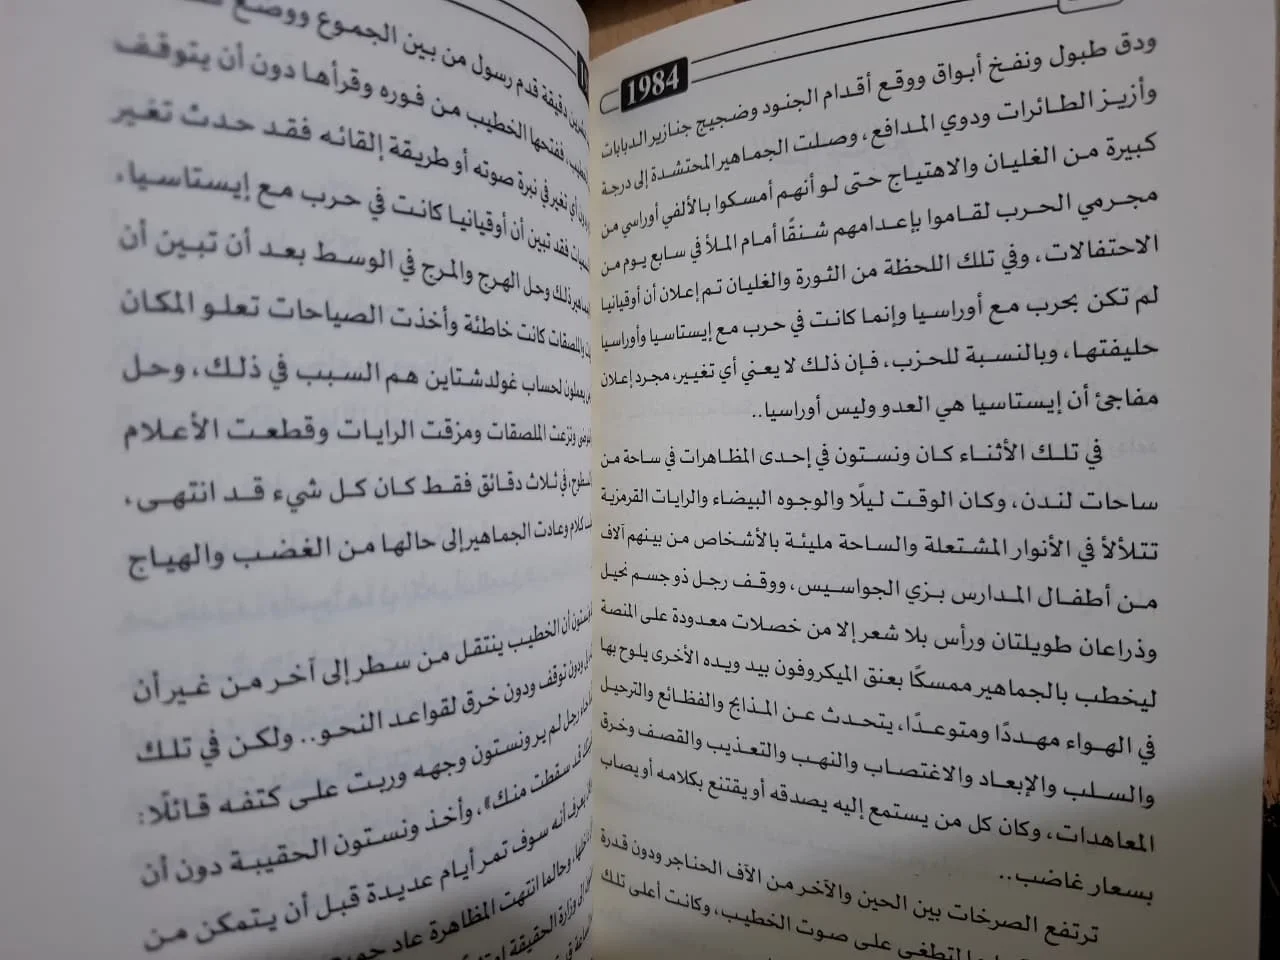 1984
ودق طبول ونفخ أبواق ووقع أقدام الجنود وضجيج جنازير الدبابات
وأزيز الطائرات ودوي المدافع، وصلت الجماهير المحتشدة إلى درجة
كبيرة من الغليان والاهتياج حتى لو أنهم أمسكوا بالألفي أوراسي من
مجرمي الحرب لقاموا بإعدامهم شنقًا أمام الملأ في سابع يوم من
الاحتفالات، وفي تلك اللحظة من الثورة والغليان تم إعلان أن أوقيانيا
لم تكن بحرب مع أوراسيا وإنما كانت في حرب مع إيستاسيا وأوراسيا
حليفتها، وبالنسبة للحزب، فإن ذلك لا يعني أي تغيير، مجرد إعلان
مفاجئ أن إيستاسيا هي العدو وليس أوراسيا..
في تلك الأثناء كان ونستون في إحدى المظاهرات في ساحة من
ساحات لندن، وكان الوقت ليلًا والوجوه البيضاء والرايات القرمزية
تتلألأ في الأنوار المشتعلة والساحة مليئة بالأشخاص من بينهم آلاف
من أطفال المدارس بزي الجواسيس، ووقف رجل ذو جسم نحيل
وذراعان طويلتان ورأس بلا شعر إلا من خصلات معدودة على المنصة
ليخطب بالجماهير ممسكًا بعنق الميكروفون بيد ويده الأخرى يلوح بها
في الهواء مهددًا ومتوعدًا، يتحدث عن المذابح والفظائع والترحيل
والسلب والإبعاد والاغتصاب والنهب والتعذيب والقصف وخرق
المعاهدات، وكان كل من يستمع إليه يصدقه أو يقتنع بكلامه أو يصاب
بسعار غاضب..
ترتفع الصرخات بين الحين والآخر من آلاف الحناجر ودون قدرة
لتطغى على صوت الخطيب، وكانت أعلى تلك
دقيقة قدم رسول من بين الجموع ووضع
ففتحها الخطيب من فوره وقرأها دون أن يتوقف
أي تغير في نبرة صوته أو طريقة إلقائه فقد حدث تغير
فقد تبين أن أوقيانيا كانت في حرب مع إيستاسيا،
ذلك وحل الهرج والمرج في الوسط بعد أن تبين أن
والملصقات كانت خاطئة وأخذت الصياحات تعلو المكان
يعملون لحساب غولدشتاين هم السبب في ذلك، وحل
ونزعت الملصقات ومزقت الرايات وقطعت الأعلام
في ثلاث دقائق فقط كان كل شيء قد انتهى،
وعادت الجماهير إلى حالها من الغضب والهياج
أن الخطيب ينتقل من سطر إلى آخر من غير أن
ودون توقف ودون خرق لقواعد النحو.. ولكن في تلك
رجل لم ير ونستون وجهه وربت على كتفه قائلًا:
قد سقطت منك»، وأخذ ونستون الحقيبة دون أن
يعرف أنه سوف تمر أيام عديدة قبل أن يتمكن من
وحالما انتهت المظاهرة عاد
إلى وزارة الحقيقة